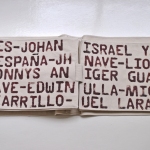 IS-JOHAN
ESPAÑA-JH
ONNYS AN
AVE-EDWIN
CARRILLO-
ISRAEL Y
NAVE-LIO
IGER GUA
ULLA-MIG
UEL LARA